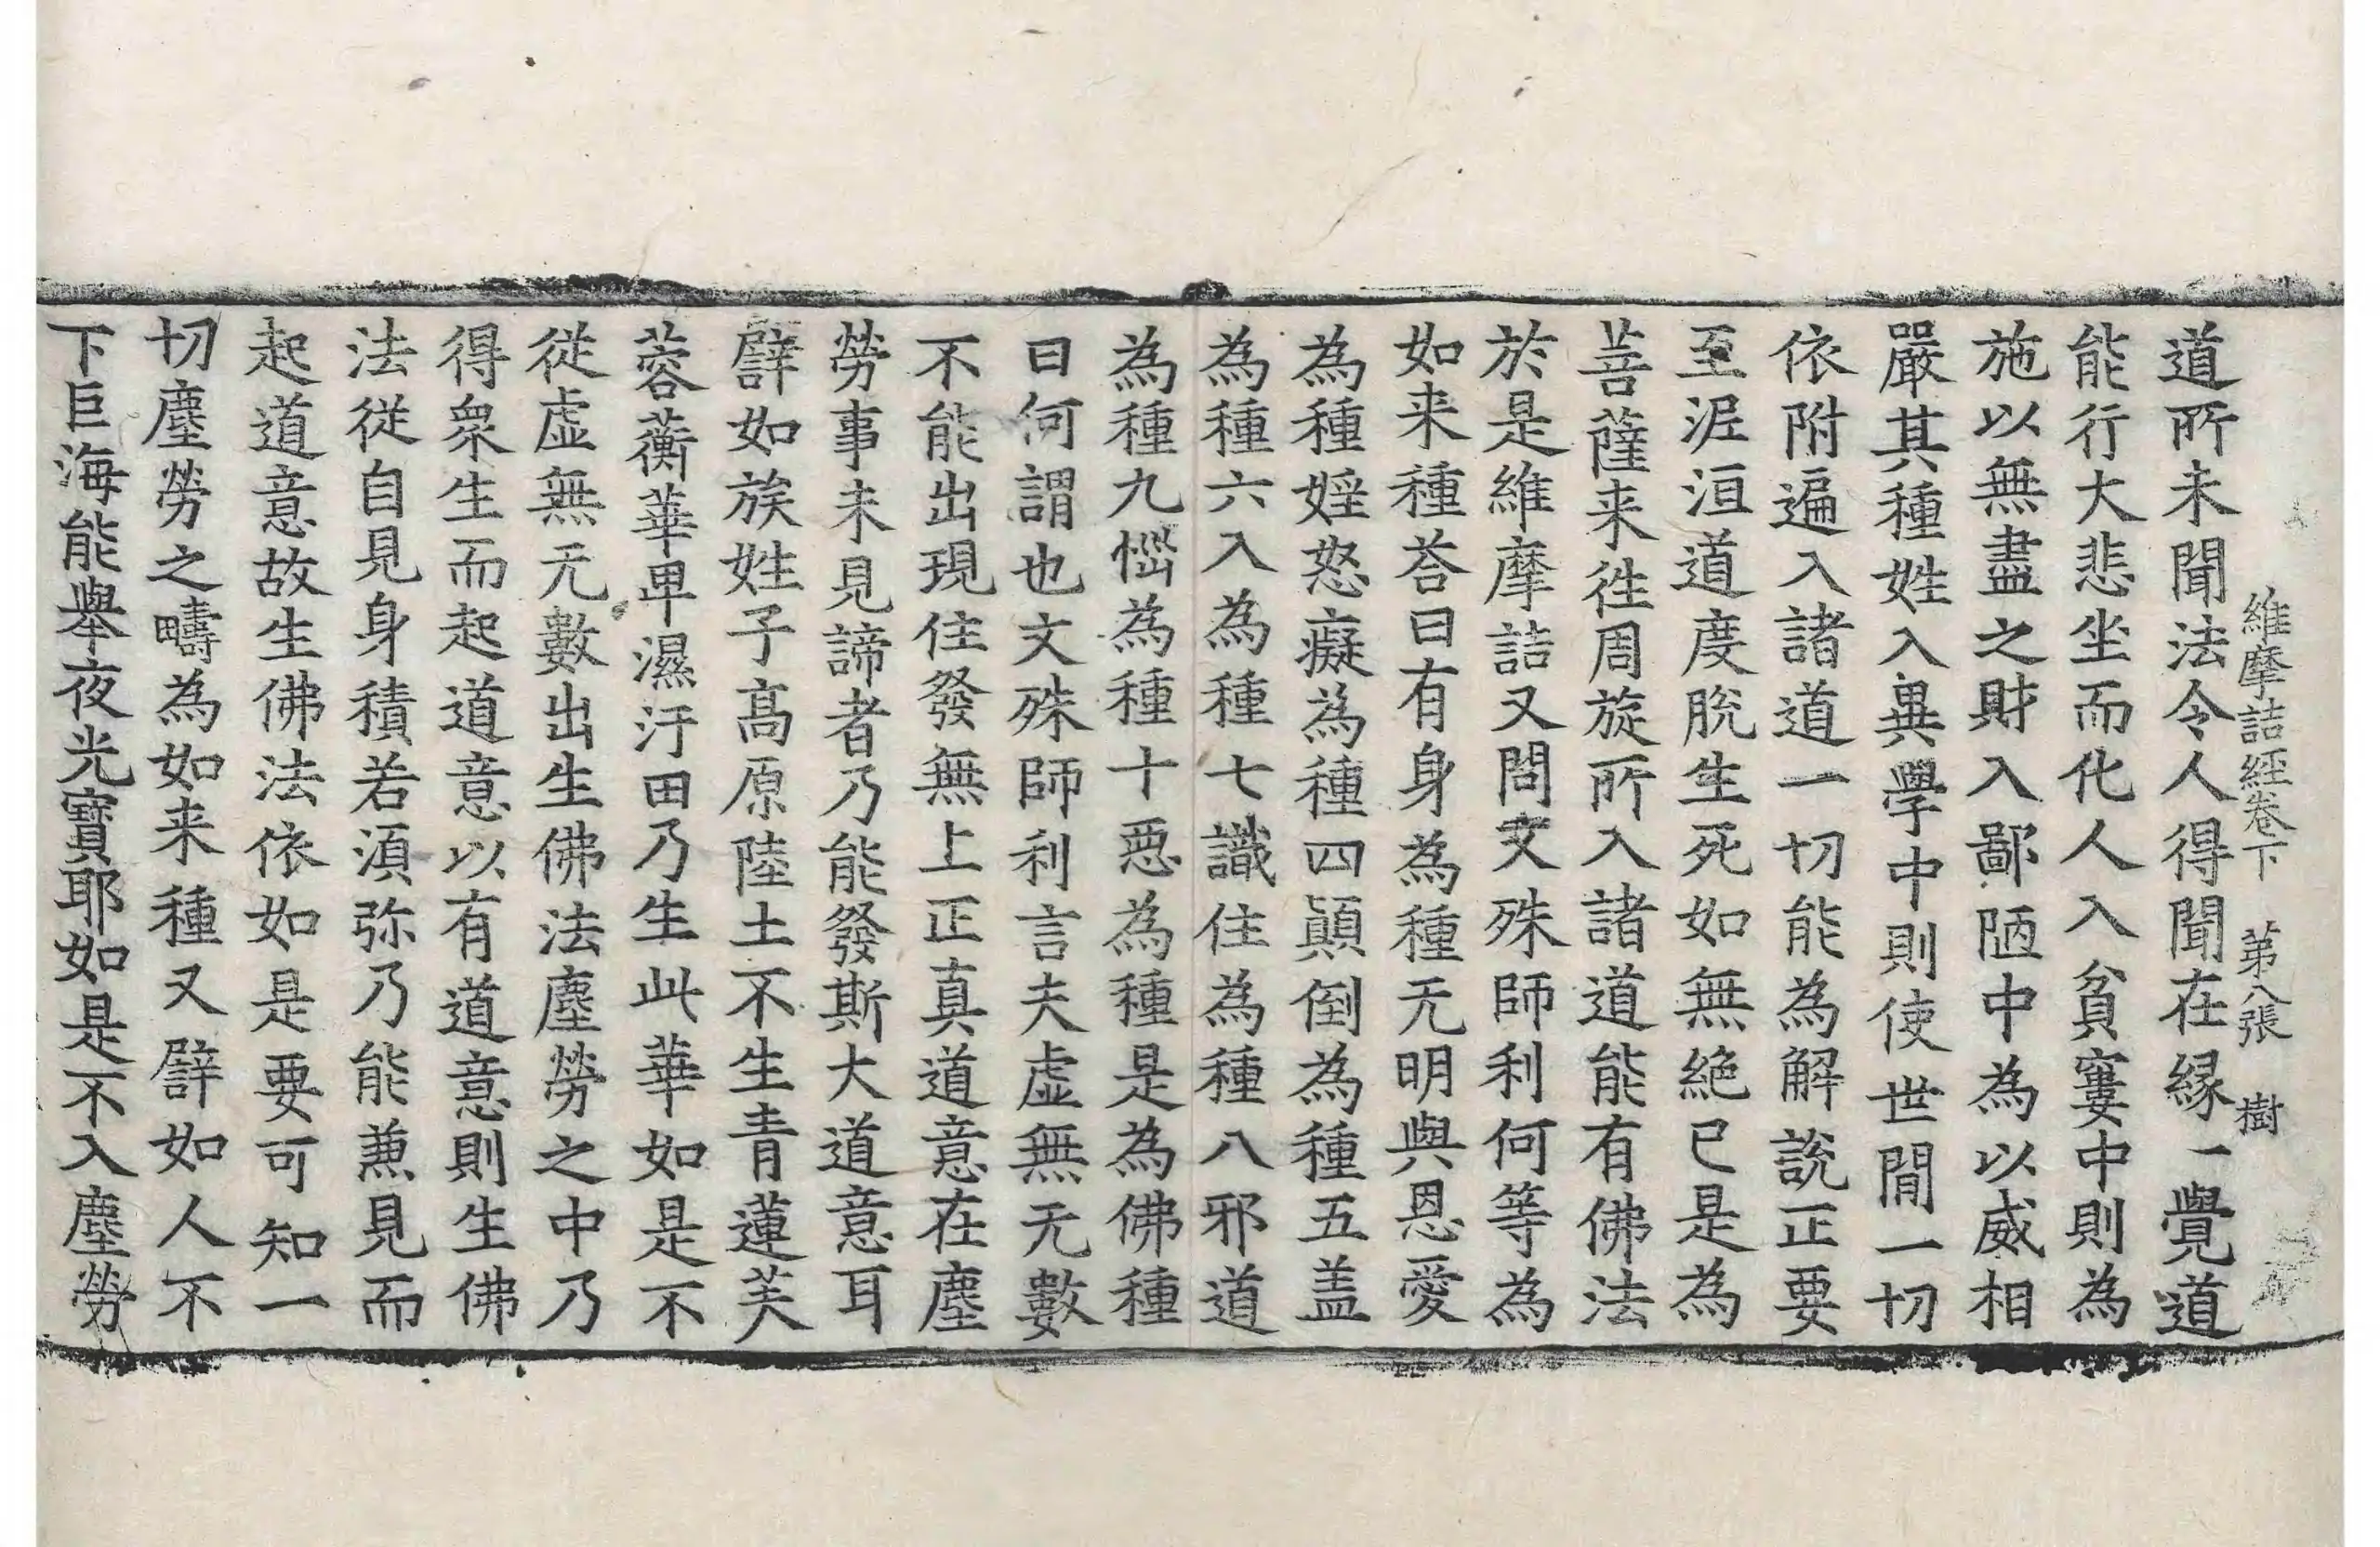 維摩詰經卷下　第八張　樹
道所未聞法令人得聞在緣一覺道
能行大悲坐而化人入貧窶中則為
施以無盡之財入鄙陋中為以威相
嚴其種姓入異學中則使世閒一切
依附遍入諸道一切能為解說正要
至泥洹道度脫生死如無絕已是為
菩薩来徃周旋所入諸道能有佛法
於是維摩詰又問文殊師利何等為
如来種荅曰有身為種无明與恩愛
為種婬怒癡為種四顛倒為種五盖
為種六入為種七識住為種八邪道
為種九惱為種十惡為種是為佛種
曰何謂也文殊師利言夫虛無无數
不能出現住發無上正真道意在塵
勞事未見諦者乃能發斯大道意耳
譬如族姓子高原陸土不生青蓮芙
蓉蘅華卑濕汙田乃生此華如是不
従虛無无數出生佛法塵勞之中乃
得衆生而起道意以有道意則生佛
法従自見身積若須弥乃能兼見而
起道意故生佛法依如是要可知一
切塵勞之疇為如来種又譬如人不
下巨海能舉夜光寶耶如是不入塵勞